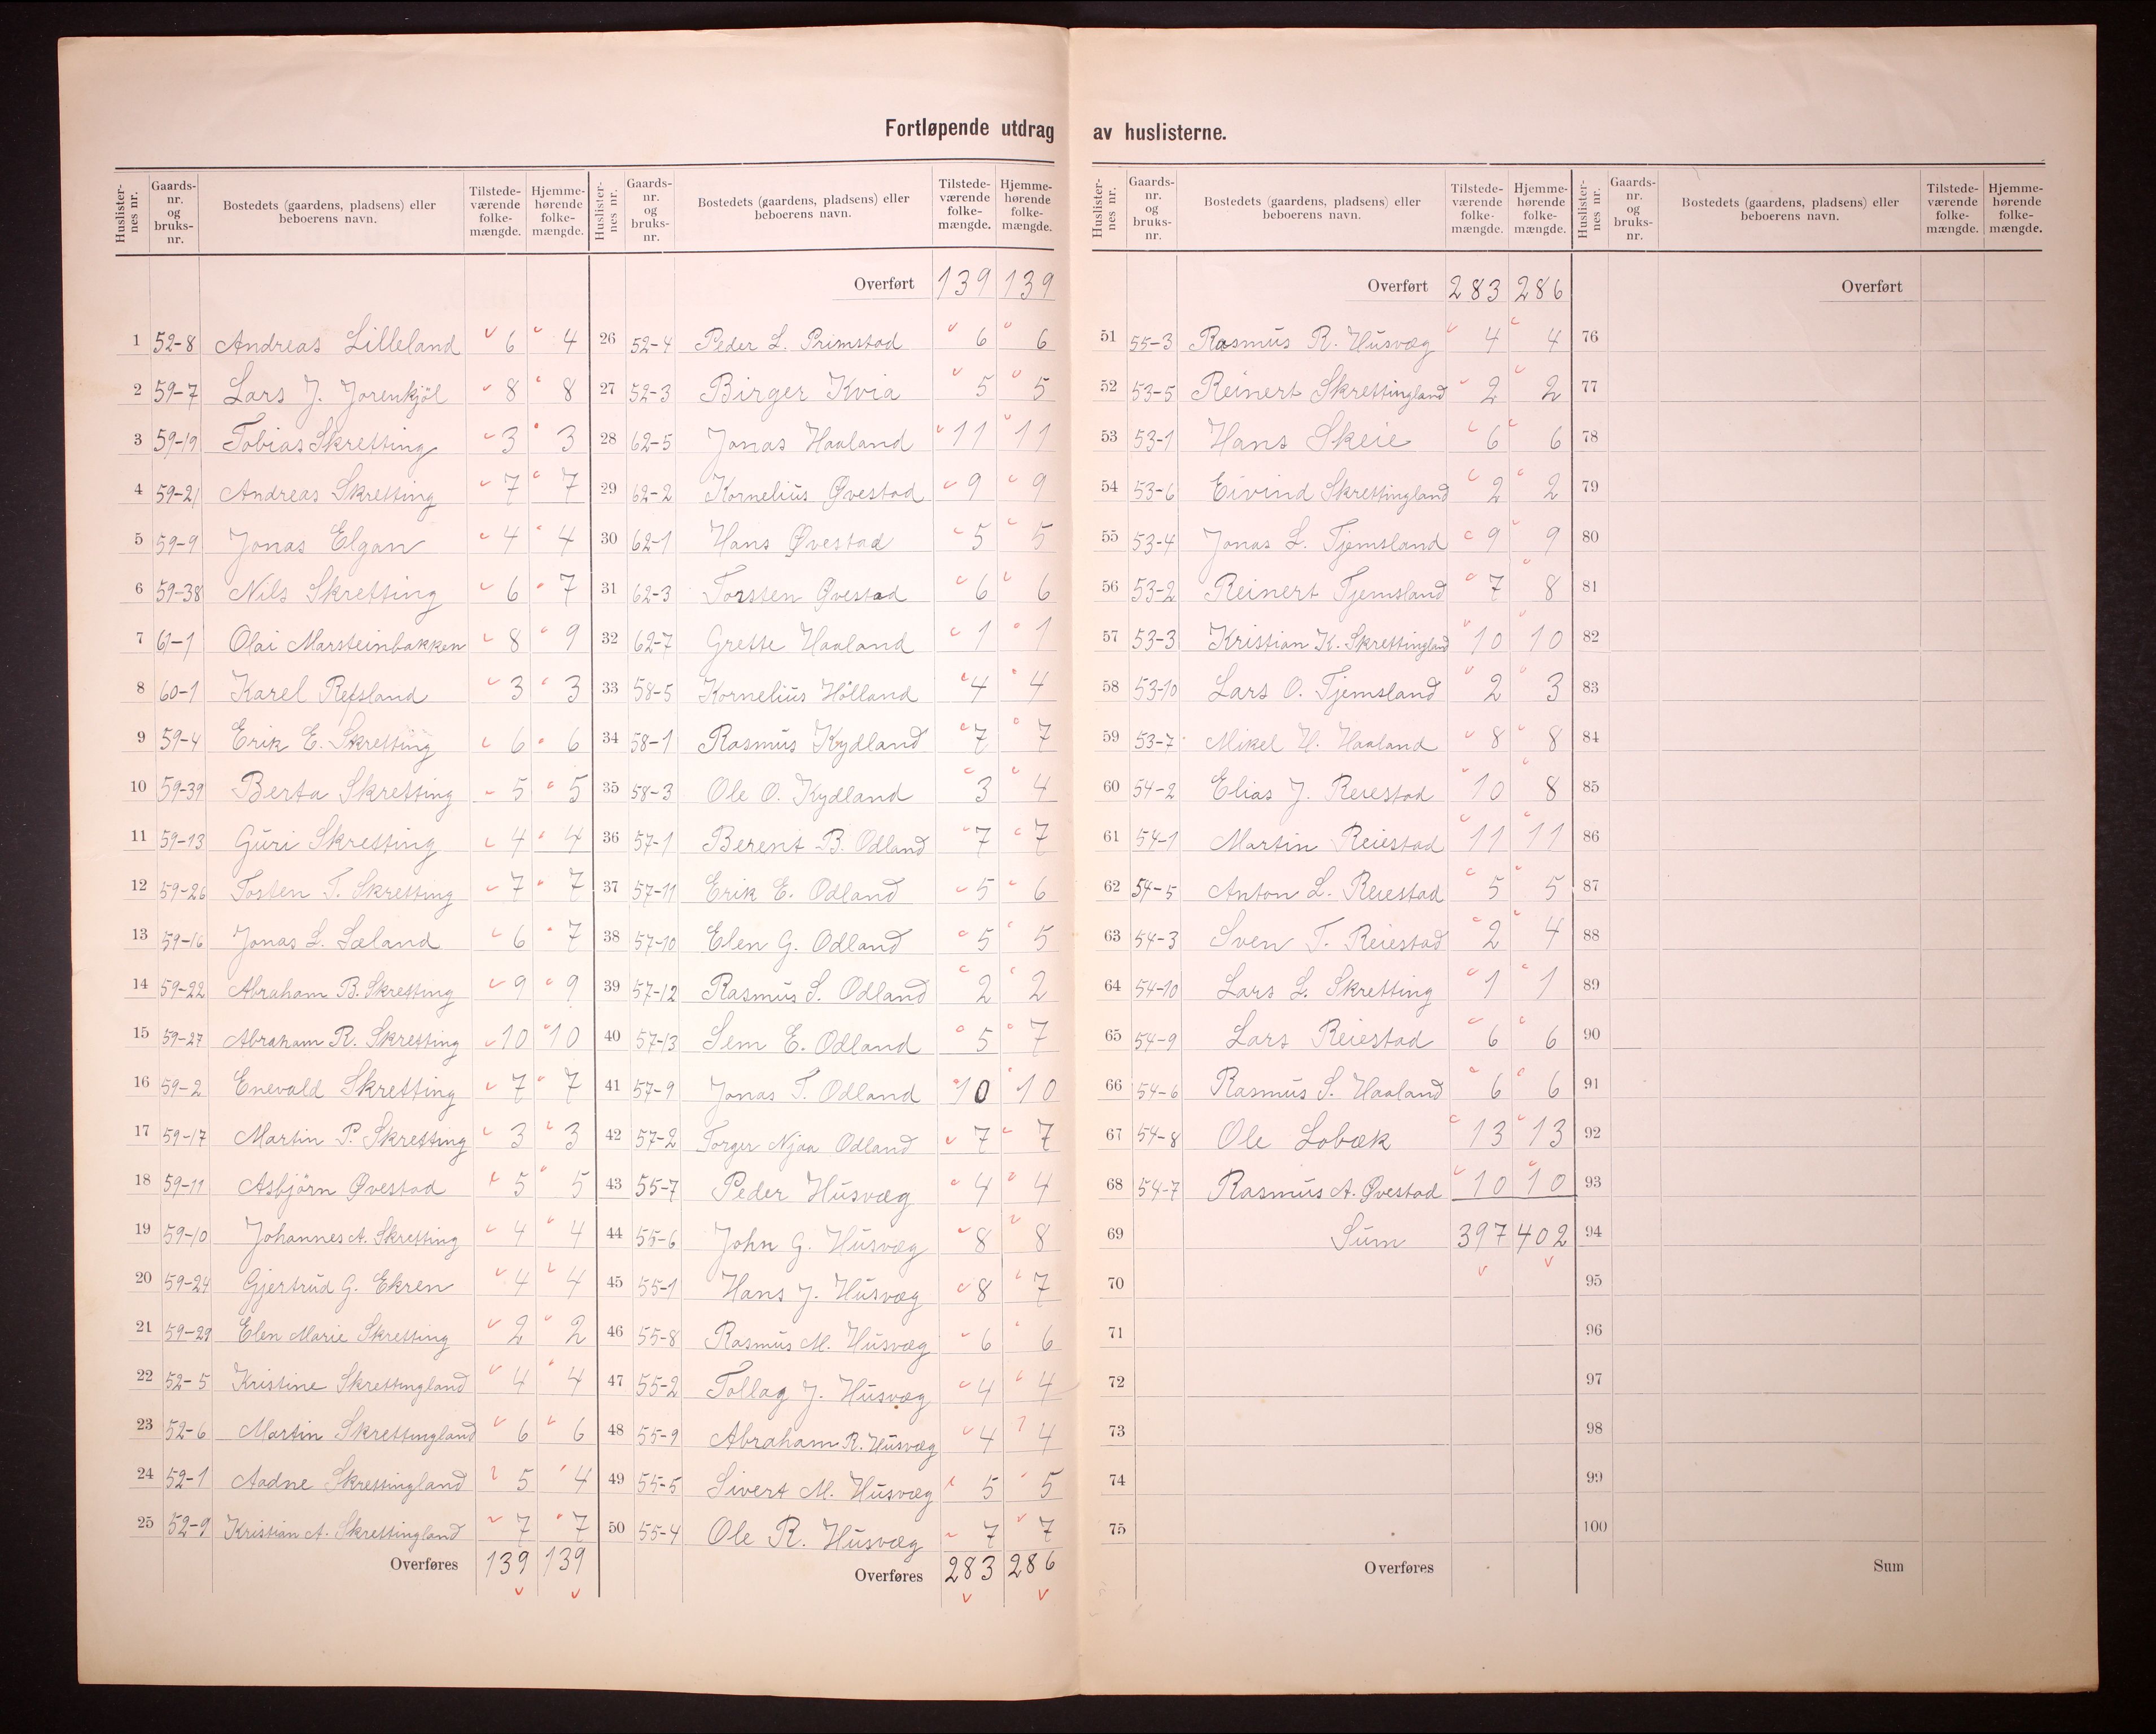 Fortløpende utdrag av huslisterne.
Huslister-nes nr. Gaards-nr. og bruks-nr. Bostedets (gaardens, pladsens) eller beboerens navn. Tilstede-værende folke-mængde. Hjemme-hørende folke-mængde.
1 52-8 Andreas Lilleland 6 4
2 59-7 Lars J. Jorenkjöl 8 8
3 59-19 Tobias Skretting 3 3
4 59-21 Andreas Skretting 7 7
5 59-9 Jonas Elgan 4 4
6 59-38 Nils Skretting 6 7
7 61-1 Olai Marsteinbakken 8 9
8 60-1 Karel Refsland 3 3
9 59-4 Erik E. Skretting 6 6
10 59-39 Berta Skretting 5 5
11 59-13 Guri Skretting 4 4
12 59-26 Tosten T. Skretting 7 7
13 59-16 Jonas L. Sæland 6 7
14 59-22 Abraham B. Skretting 9 9
15 59-27 Abraham R. Skretting 10 10
16 59-2 Enevald Skretting 7 7
17 59-17 Martin P. Skretting 3 3
18 59-11 Asbjörn Øvestad 5 5
19 59-10 Johannes A. Skretting 4 4
20 59-24 Gjertrud G. Ekren 4 4
21 59-29 Elen Marie Skretting 2 2
22 52-5 Kristine Skrettingland 4 4
23 52-6 Martin Skrettingland 6 6
24 52-1 Aadne Skrettingland 5 4
25 52-9 Kristian A. Skrettingland 7 7
Overføres 139 139
Huslister-nes nr. Gaards-nr. og bruks-nr. Bostedets (gaardens, pladsens) eller beboerens navn. Tilstede-værende folke-mængde. Hjemme-hørende folke-mængde.
Overført 139 139
26 52-4 Peder L. Primstad 6 6
27 52-3 Birger Kvia 5 5
28 62-5 Jonas Haaland 11 11
29 62-2 Kornelius Øvestad 9 9
30 62-1 Hans Øvestad 5 5
31 62-3 Torsten Øvestad 6 6
32 62-7 Grette Haaland 1 1
33 58-5 Kornelius Hölland 4 4
34 58-1 Rasmus Kydland 7 7
35 58-3 Ole O. Kydland 3 4
36 57-1 Berent B. Odland 7 7
37 57-11 Erik E. Odland 5 6
38 57-10 Elen G. Odland 5 5
39 57-12 Rasmus S. Odland 2 2
40 57-13 Sem E. Odland 5 7
41 57-9 Jonas T. Odland 10 10
42 57-2 Torger Njaa Odland 7 7
43 55-7 Peder Husvæg 4 4
44 55-6 John G. Husvæg 8 8
45 55-1 Hans J. Husvæg 8 7
46 55-8 Rasmus M. Husvæg 6 6
47 55-2 Tollag J. Husvæg 4 4
48 55-9 Abraham R. Husvæg 4 4
49 55-5 Sivert M. Husvæg 5 5
50 55-4 Ole R. Husvæg 7 7
Overføres 283 286
Huslister-nes nr. Gaards-nr. og bruks-nr. Bostedets (gaardens, pladsens) eller beboerens navn. Tilstede-værende folke-mængde. Hjemme-hørende folke-mængde.
Overført 283 286
51 55-3 Rasmus R. Husvæg 4 4
52 53-5 Reinert Skrettingland 2 2
53 53-1 Hans Skeie 6 6
54 53-6 Eivind Skrettingland 2 2
55 53-4 Jonas L. Tjemsland 9 9
56 53-2 Reinert Tjemsland 7 8
57 53-3 Kristian K. Skrettingland 10 10
58 53-10 Lars O. Tjemsland 2 3
59 53-7 Mikel H. Haaland 8 8
60 54-2 Elias J. Reiestad 10 8
61 54-1 Martin Reiestad 11 11
62 54-5 Anton L. Reiestad 5 5
63 54-3 Sven T. Reiestad 2 4
64 54-10 Lars L. Skretting 1 1
65 54-9 Lars Reiestad 6 6
66 54-6 Rasmus S. Haaland 6 6
67 54-8 Ole Lobæk 13 13
68 54-7 Rasmus A. Øvestad 10 10
69 Sum 397 402
70
71
72
73
74
75
Overføres
Huslister-nes nr. Gaards-nr. og bruks-nr. Bostedets (gaardens, pladsens) eller beboerens navn. Tilstede-værende folke-mængde. Hjemme-hørende folke-mængde.
Overført
76
77
78
79
80
81
82
83
84
85
86
87
88
89
90
91
92
93
94
95
96
97
98
99
100
Sum